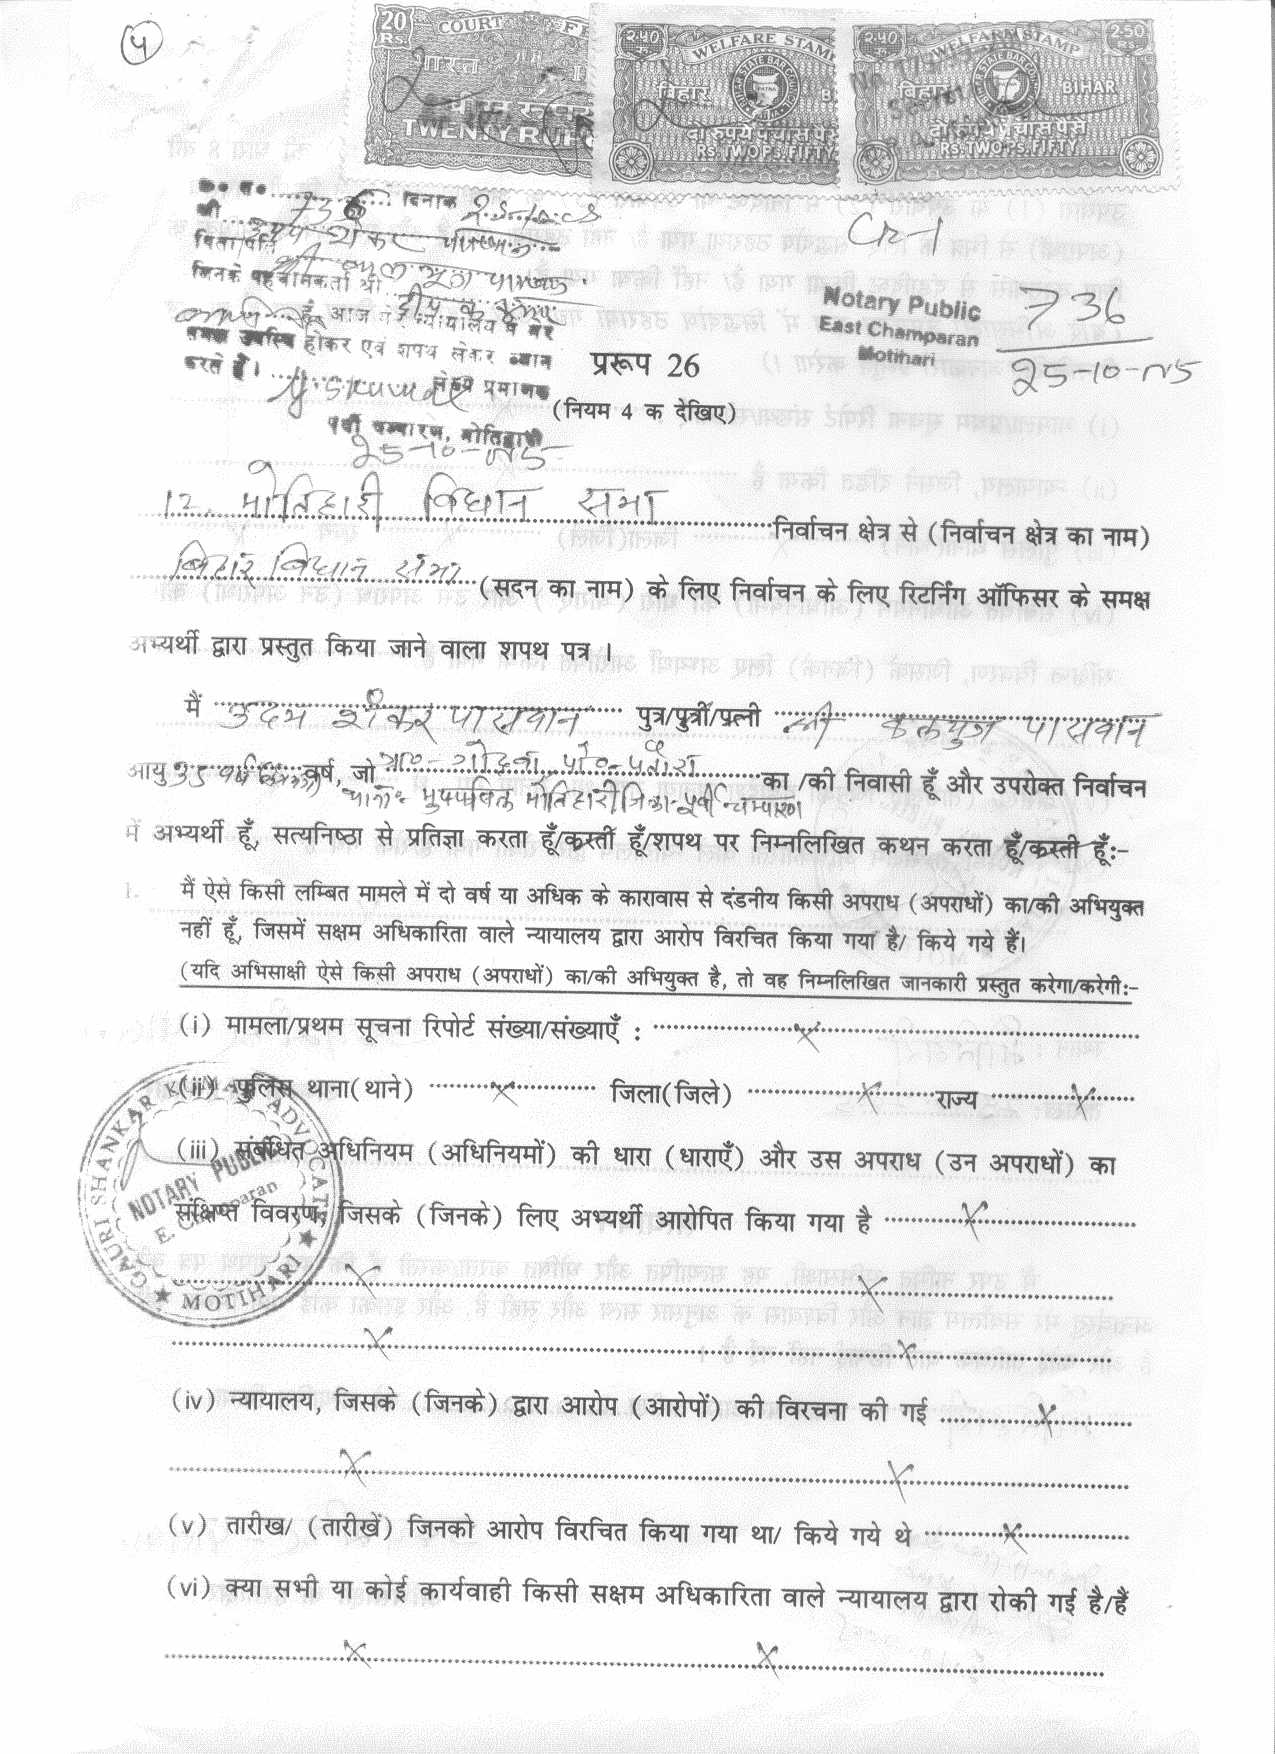 (५)
20 Rs. COURT FE
भारत
TWENTY RUP
२.५० रु WELFARE STAMP
बिहार B
STATE BAR COUNCIL PATNA
दो रुपये पचास पैसे
Rs. TWO Ps. FIFTY
२.५० रु WELFARE STAMP 2-50 Rs
बिहार BIHAR
दो रुपये पचास पैसे
Rs. TWO Ps. FIFTY
क्र० सं० 736 दिनांक
श्री उदय शंकर पासवान
पिता/पति श्री
जिनके पहचानकर्ता श्री
हूं आज
समक्ष उपस्थित होकर एवं शपथ लेकर ब्यान
करते हैं।
लेख्य प्रमाणक
पूर्वी चम्पारण, मोतिहारी
25-10-05
Notary Public
East Champaran
Motihari
736
25-10-05
प्ररूप 26
(नियम 4 क देखिए)
12. मोतिहारी विधान सभा निर्वाचन क्षेत्र से (निर्वाचन क्षेत्र का नाम)
बिहार विधान सभा (सदन का नाम) के लिए निर्वाचन के लिए रिटर्निंग ऑफिसर के समक्ष
अभ्यर्थी द्वारा प्रस्तुत किया जाने वाला शपथ पत्र ।
मैं उदय शंकर पासवान पुत्र/पुत्री/पत्नी श्री पासवान
आयु 35 वर्ष, जो ग्रा०- पो०- का /की निवासी हूँ और उपरोक्त निर्वाचन
थाना- मुफ्फसिल मोतिहारी जिला-पूर्वी चम्पारण
में अभ्यर्थी हूँ, सत्यनिष्ठा से प्रतिज्ञा करता हूँ/करती हूँ/शपथ पर निम्नलिखित कथन करता हूँ/करती हूँ:-
1. मैं ऐसे किसी लम्बित मामले में दो वर्ष या अधिक के कारावास से दंडनीय किसी अपराध (अपराधों) का/की अभियुक्त
नहीं हूँ, जिसमें सक्षम अधिकारिता वाले न्यायालय द्वारा आरोप विरचित किया गया है/ किये गये हैं।
(यदि अभिसाक्षी ऐसे किसी अपराध (अपराधों) का/की अभियुक्त है, तो वह निम्नलिखित जानकारी प्रस्तुत करेगा/करेगी:-
(i) मामला/प्रथम सूचना रिपोर्ट संख्या/संख्याएँ : X
(ii) पुलिस थाना(थाने) X जिला(जिले) X राज्य X
(iii) संबंधित अधिनियम (अधिनियमों) की धारा (धाराएँ) और उस अपराध (उन अपराधों) का
संक्षिप्त विवरण, जिसके (जिनके) लिए अभ्यर्थी आरोपित किया गया है X
X X
X X
GAURI SHANKAR KUMAR ADVOCATE
NOTARY PUBLIC
E. Champaran
★ MOTIHARI ★
(iv) न्यायालय, जिसके (जिनके) द्वारा आरोप (आरोपों) की विरचना की गई X
X X
(v) तारीख/ (तारीखें) जिनको आरोप विरचित किया गया था/ किये गये थे X
(vi) क्या सभी या कोई कार्यवाही किसी सक्षम अधिकारिता वाले न्यायालय द्वारा रोकी गई है/हैं
X X